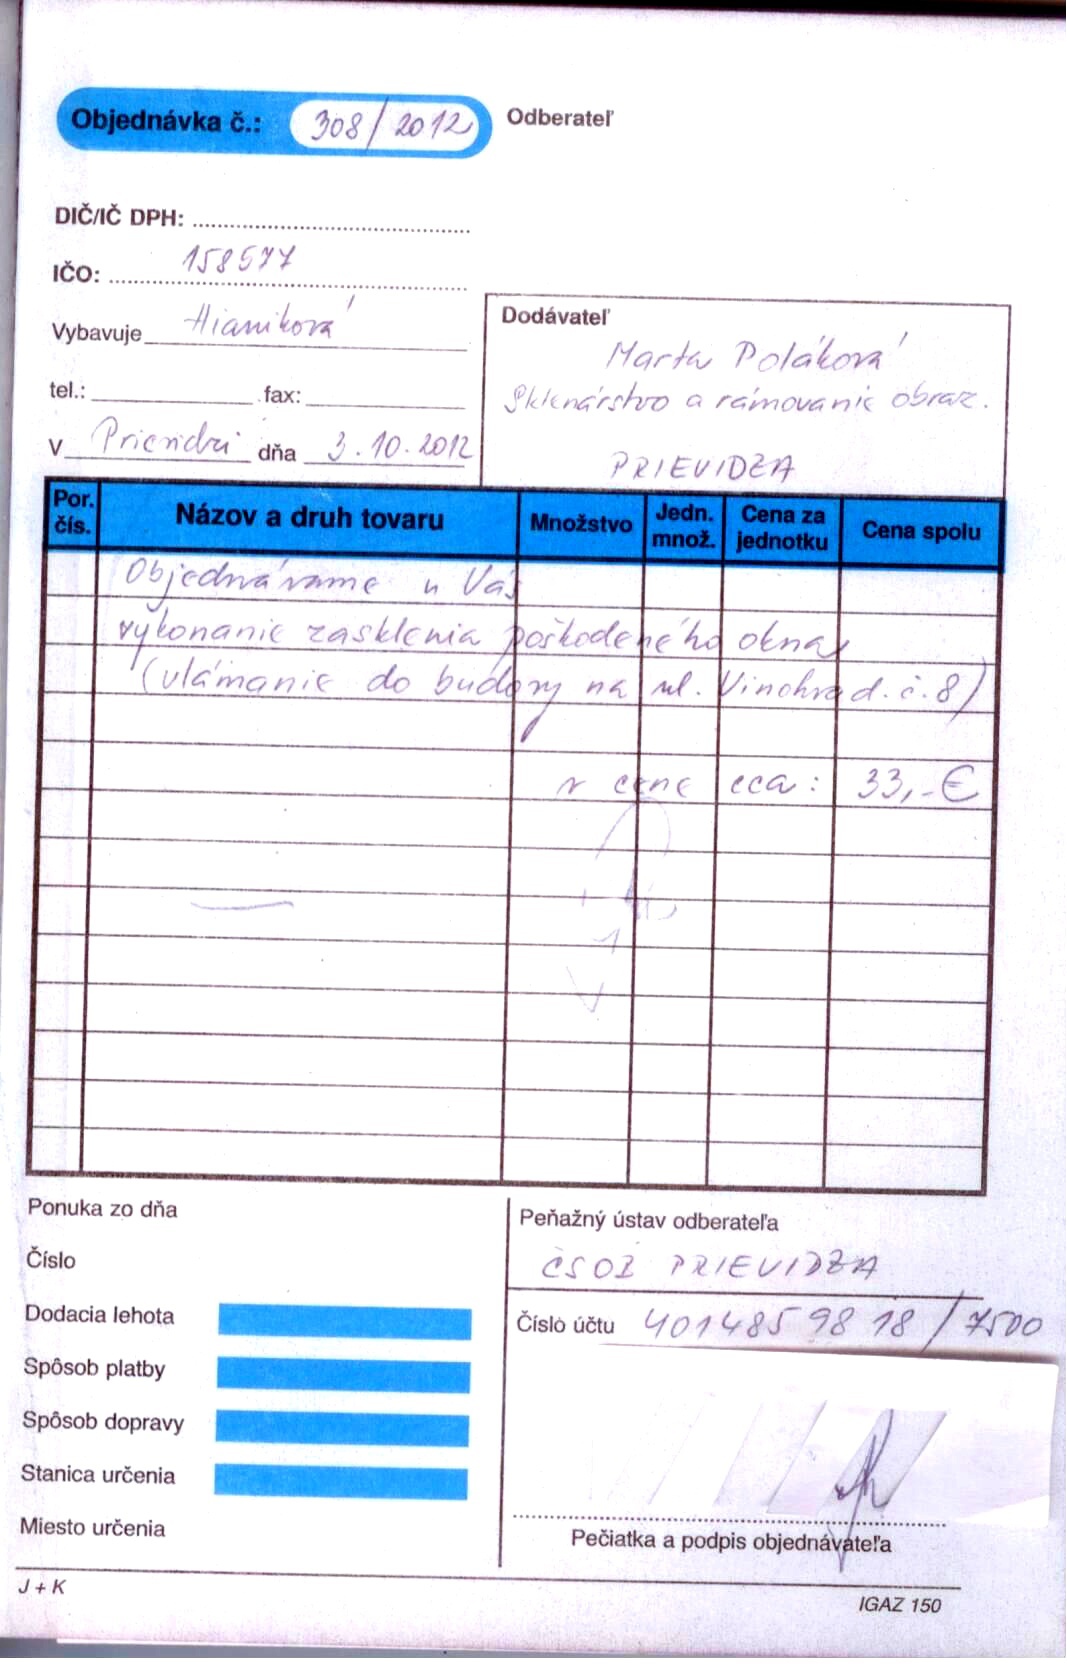 Objednávka č.: 308/2012
Odberateľ
DIČ/IČ DPH:
IČO: 158577
Vybavuje Hianiková
tel.: fax:
V Prievidzi dňa 3.10.2012
Dodávateľ
Marta Poláková
Sklenárstvo a rámovanie obraz.
PRIEVIDZA
Por. čís. Názov a druh tovaru Množstvo Jedn. množ. Cena za jednotku Cena spolu
Objednávame u Vás
vykonanie zasklenia poškodeného okna
(vlámanie do budovy na ul. Vinohrad. č. 8)
v cene cca: 33,-€
Ponuka zo dňa
Číslo
Dodacia lehota
Spôsob platby
Spôsob dopravy
Stanica určenia
Miesto určenia
Peňažný ústav odberateľa
ČSOB PRIEVIDZA
Číslo účtu 4014859818/7500
Pečiatka a podpis objednávateľa
J + K
IGAZ 150